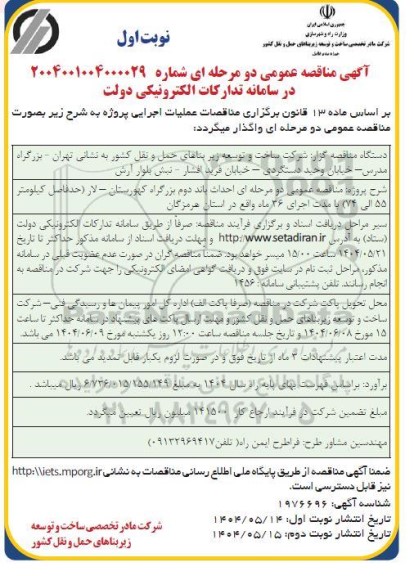 جمهوری اسلامی ایران
وزارت راه و شهرسازی
شرکت مادر تخصصی ساخت و توسعه زیربناهای حمل و نقل کشور
نوبت اول
آگهی مناقصه عمومی دو مرحله ای شماره ۲۰۰۴۰۰۱۰۰۴۰۰۰۰۲۹
در سامانه تدارکات الکترونیکی دولت
بر اساس ماده ۱۳ قانون برگزاری مناقصات عملیات اجرایی پروژه به شرح زیر بصورت
مناقصه عمومی دو مرحله ای واگذار میگردد:
دستگاه مناقصه گزار: شرکت ساخت و توسعه زیر بناهای حمل و نقل کشور به نشانی تهران - بزرگراه
مدرس– خیابان وحید دستگردی – خیابان فرید افشار - نبش بلوار آرش
شرح پروژه: مناقصه عمومی دو مرحله ای احداث باند دوم بزرگراه کهورستان – لار (حدفاصل کیلومتر
55 الی ۷۴) با مدت اجرای ۳۶ ماه واقع در استان هرمزگان
سیر مراحل دریافت اسناد و برگزاری فرآیند مناقصه: صرفاً از طریق سامانه تدارکات الکترونیکی دولت
(ستاد) به آدرس http://www.setadiran.ir و مهلت دریافت اسناد از سامانه مذکور حداکثر تا تاریخ
۱۴۰۴/۰۵/۲۱ ساعت ۱۵:۰۰ میسر خواهد بود. ضمنا مناقصه گران در صورت عدم عضویت قبلی در سامانه
مذکور، مراحل ثبت نام در سایت فوق و دریافت گواهی امضای الکترونیکی را جهت شرکت در مناقصه به
انجام رسانند. تلفن پشتیبانی سامانه: ۱۴۵۶
محل تحویل پاکت شرکت در مناقصه (صرفا پاکت الف) اداره کل امور پیمان ها و رسیدگی فنی– شرکت
ساخت و توسعه زیربناهای حمل و نقل کشور و مهلت ارسال پاکت های پیشنهاد در سامانه حداکثر تا ساعت
۱۵ مورخ ۱۴۰۴/۰۶/۰۸ و تاریخ جلسه مناقصه ساعت ۱۳:۰۰ روز یکشنبه مورخ ۱۴۰۴/۰۶/۰۹ می باشد.
مدت اعتبار پیشنهادات ۳ ماه از تاریخ فوق و در صورت لزوم یکبار قابل تمدید می باشد.
برآورد: براساس فهرست بهای پایه راه سال ۱۴۰۴ به مبلغ ۶/۷۳۶/۰۱۵/۱۵۵/۱۴۹ ریال میباشد.
مبلغ تضمین شرکت در فرآیند ارجاع کار: ۱۴۱۵۰۰ میلیون ریال تعیین میگردد.
مهندسین مشاور طرح: فراطرح ایمن راه( تلفن۰۹۱۳۲۹۶۹۴۱۷)
ضمنا آگهی مناقصه از طریق پایگاه ملی اطلاع رسانی مناقصات به نشانی http://iets.mporg.ir
نیز قابل دسترسی است.
شناسه آگهی: ۱۹۷۶۶۹۶
تاریخ انتشار نوبت اول: ۱۴۰۴/۰۵/۱۴
تاریخ انتشار نوبت دوم: ۱۴۰۴/۰۵/۱۵
شرکت مادر تخصصی ساخت و توسعه
زیربناهای حمل و نقل کشور